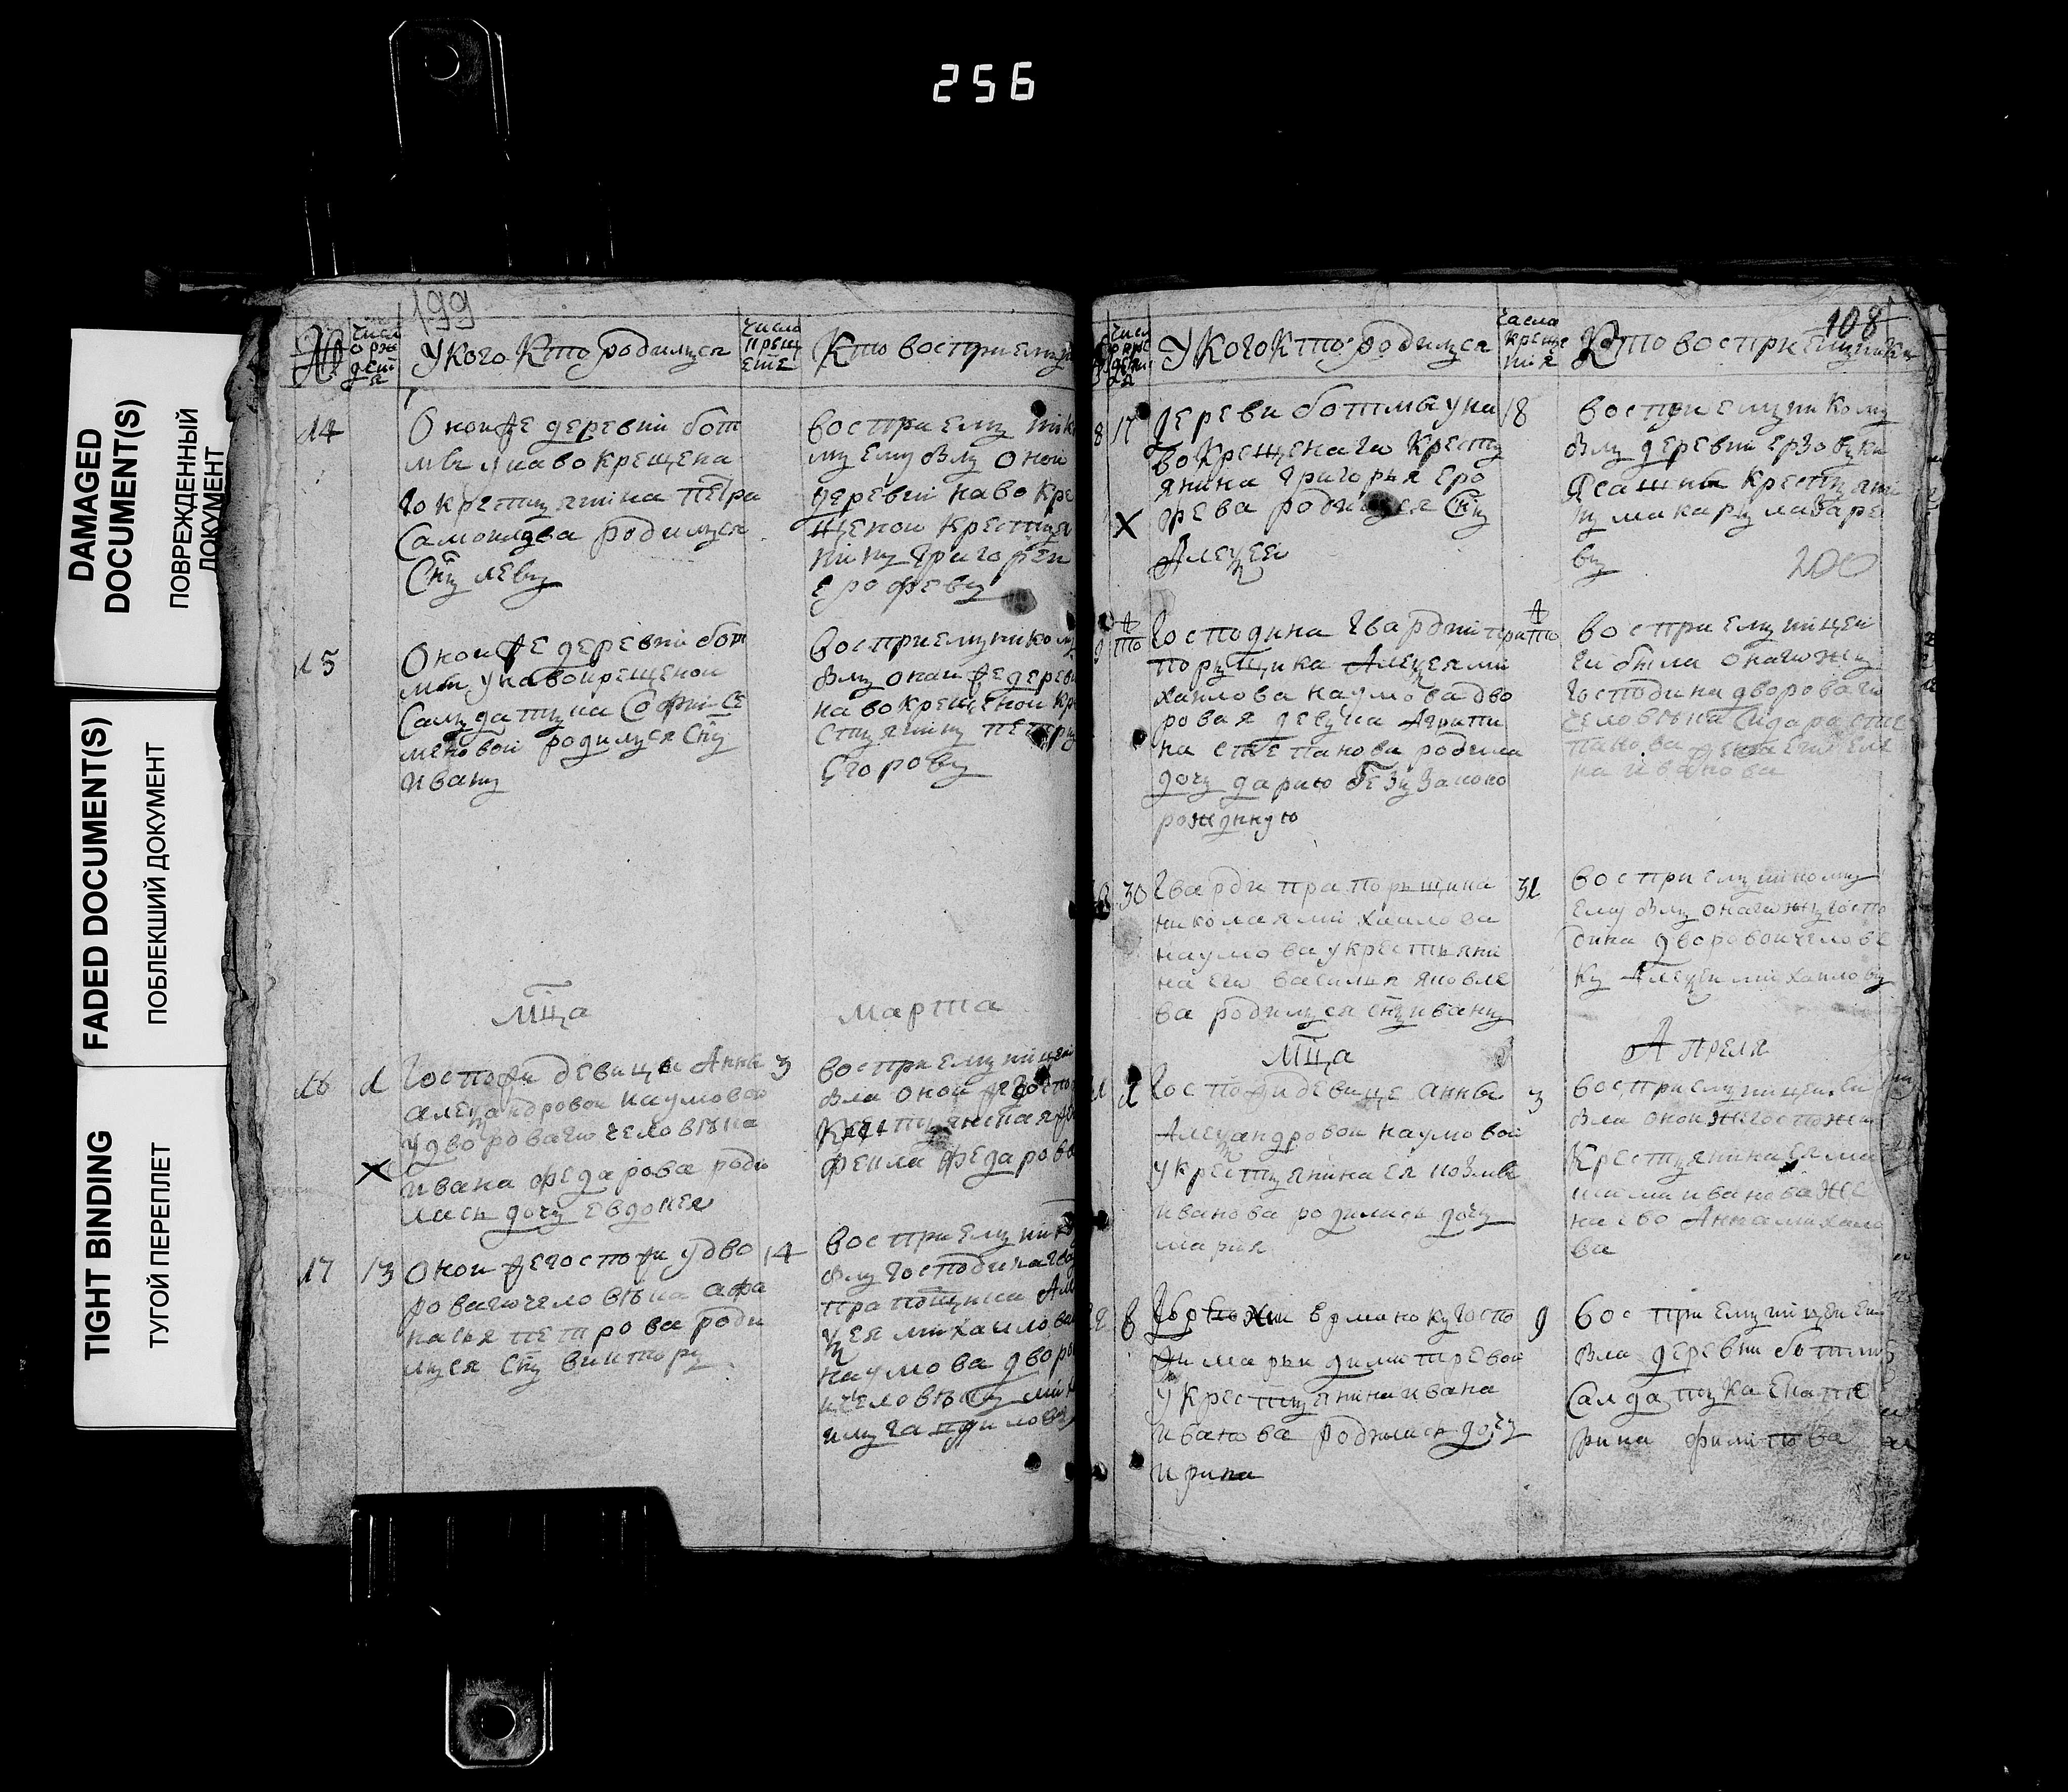 256
DAMAGED
DOCUMENT(S)
ПОВРЕЖДЕННЫЙ
ДОКУМЕНТ
FADED DOCUMENT(S)
ПОБЛЕКШИЙ ДОКУМЕНТ
TIGHT BINDING
ТУГОЙ ПЕРЕПЛЕТ
199
№
У кого Кто родилися
Кто восприемни
14
Оной же деревни бот
мы у наво крещена
го крестьянина петра
Самойлова родился
Снъ левъ
восприемник
му ему был оной
деревни наво кре
щеной крестья
нинъ григорей
ерофеевъ
15
Оной же деревни бот
мы у на вокрещеной
Салдатъки Софьи Се
меновой родился Снъ
иванъ
восприемником
был оной же дерев
на вокрещеной кр
стьянинъ петръ
Егоровъ
Мца
марта
16
1
Госпожи девицы Анны
александровой наумовой
у дво роваго человека
ивана федарова роди
лась дочь евдокея
3
восприемницей
была оной же госпо
крестьянская
фекла федарова
17
13
Оной же госпожи у дво
роваго человека афа
насья петрова роди
лся Снъ викторъ
14
восприемник
был господина
прапощика Але
ксея михайлова
наумова дворо
человекъ
108
У кого кто родился
Кто восприемники
8
17
деревни ботмы у на
вокрещенаго кресть
янина григорья еро
фева родился Снъ
Алексей
18
восприемникому
былъ деревни ерзовки
Ясашны крестьяни
нъ макаръ лазаре
въ
200
Господина гвардии
порутчика Алексея ми
хаилова наумова дво
ровая девка
на степанова родила
дочь дарию безъзаконо
рожднную
восприемницей
ей была онагожъ
господина двороваго
человека Сидара сте
панова жена его еле
на иванова
30
Гвардии прапорщика
николая михаилова
наумова у крестьяни
на ево василья яковле
ва родился снъ иванъ
31
восприемникомъ
ему былъ онагожъ госпо
дина дворовой челове
къ Алексей михаиловъ
Мца
Апреля
Госпожи девице анны
Александровой наумовой
у крестьянина ея козмы
иванова родилась дочь
мария
3
восприемницей ей
была оной жъ госпожи
крестьянина ея
иванова же
на ево Анна михаило
ва
8
госпо
жи марьи димитревой
у крестьянина ивана
иванова родилась дочь
ирина
9
восприемницей ей
была деревни ботмы
Салдатка Екате
рина филипова